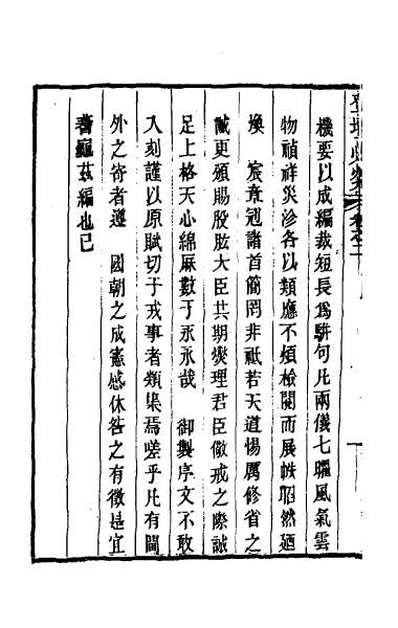 機要以成編裁短長為駢句凡兩儀七曜風氣雲
物禎祥災沴各以類應不煩檢閱而展帙昭然迺
煥　宸章冠諸首簡罔非祗若天道惕厲修省之
誠更頒賜股肱大臣共期爕理君臣儆戒之際誠
足上格天心綿厤數于永永哉　御製序文不敢
入刻謹以原賦切于戒事者類集焉嗟乎凡有閫
外之寄者遵　國朝之成憲感休咎之有徵是宜
蓍龜茲編也已